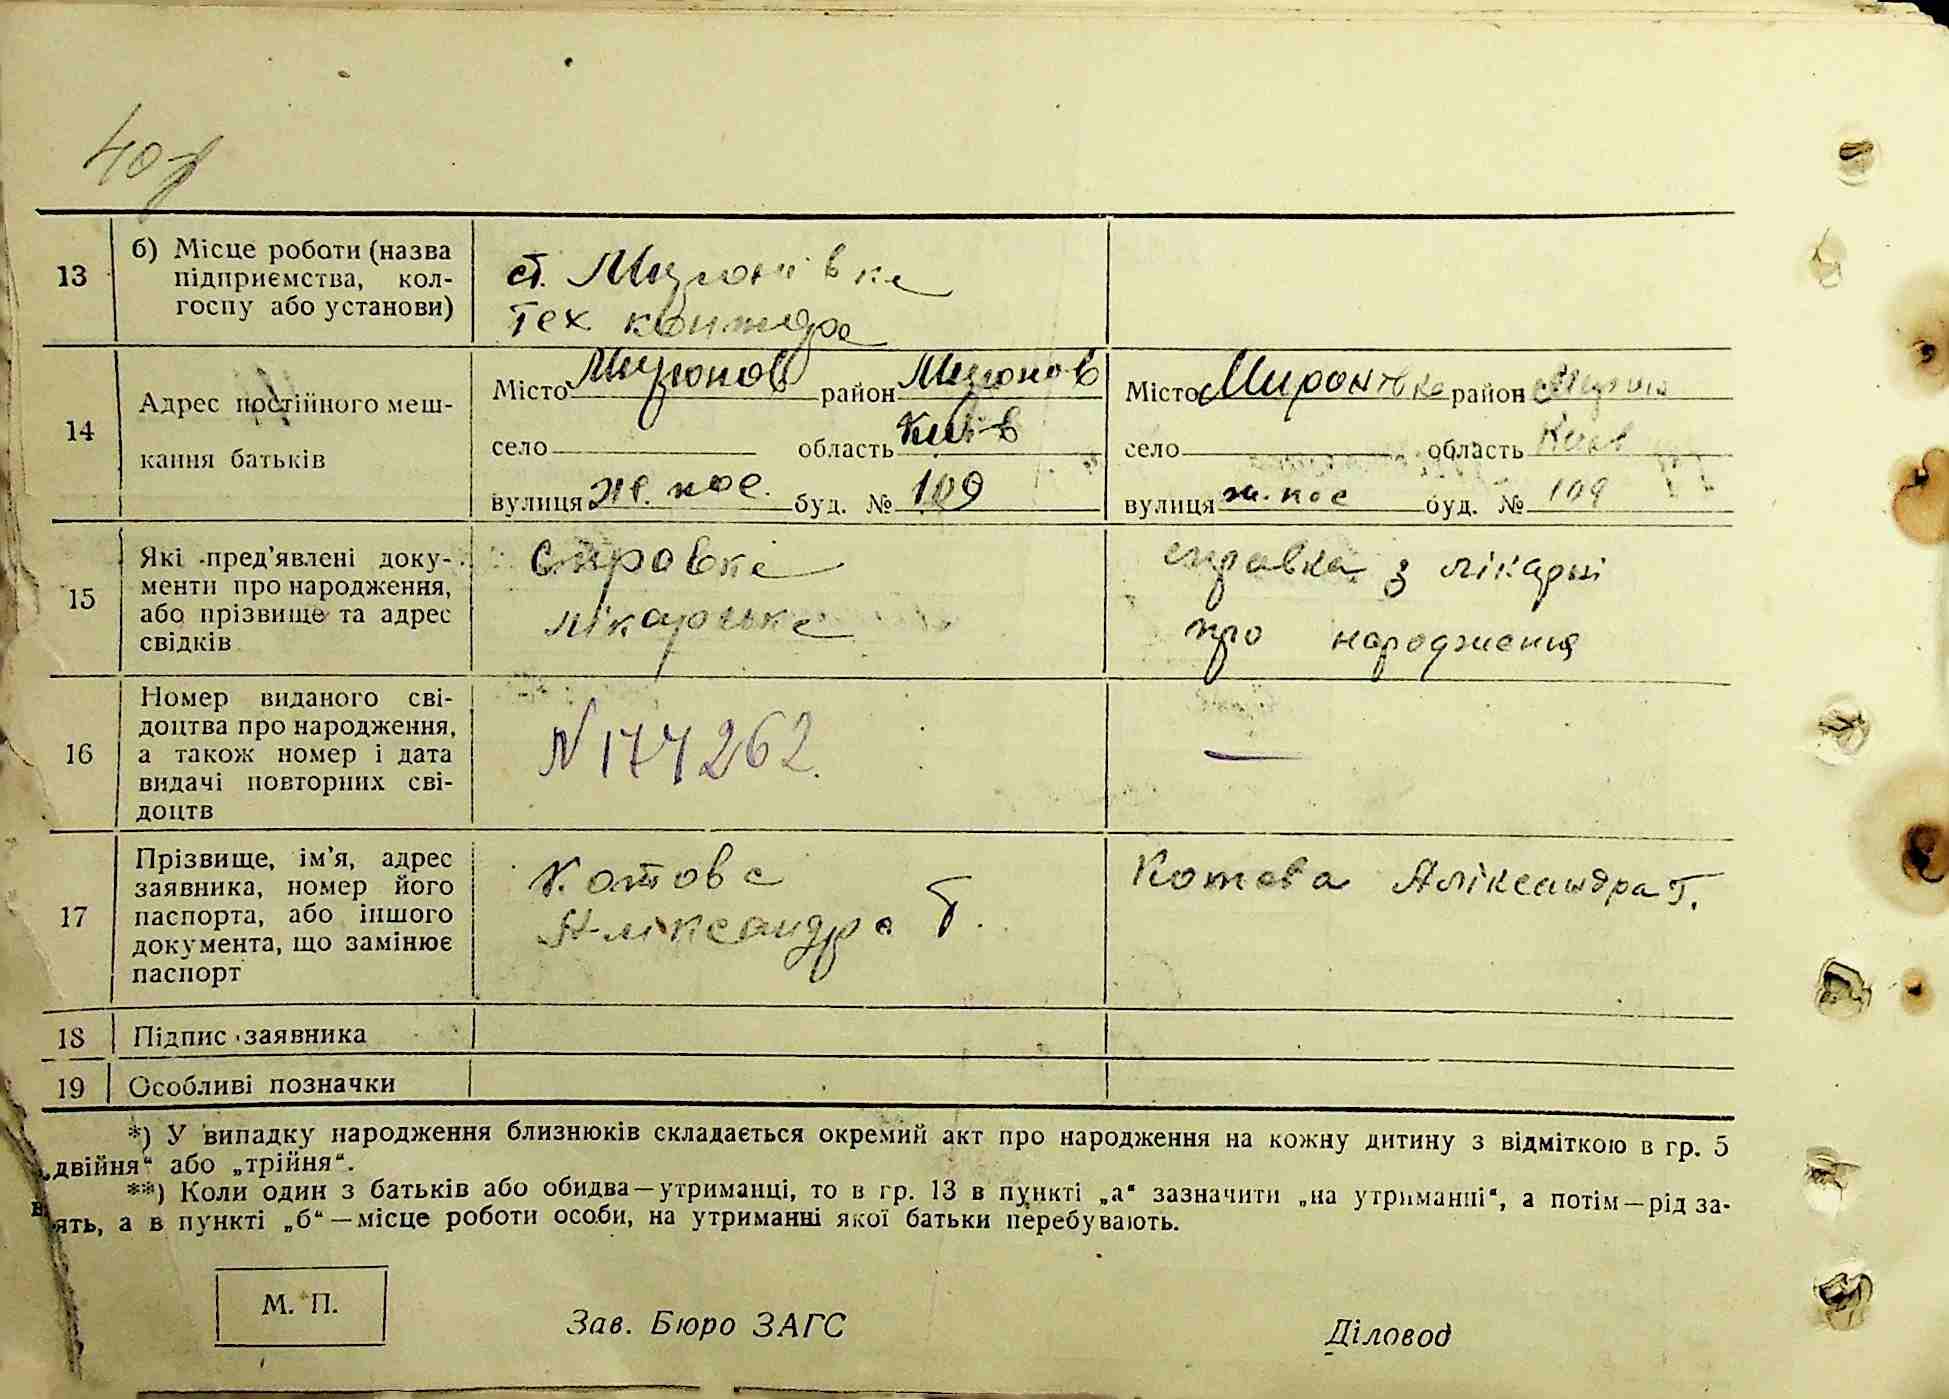 13
б) Місце роботи (назва
підприємства, кол-
госпу або установи)
ст. Миронівка
тех. контора
14
Адрес постійного меш-
кання батьків
Місто Миронов район Миронов
село область Київ
вулиця ж. пос. буд. № 109
Місто Миронівка район
село область Київ
вулиця ж. пос буд. № 109
15
Які пред'явлені доку-
менти про народження,
або прізвище та адрес
свідків
Справка
лікарська
справка з лікарні
про народження
16
Номер виданого сві-
доцтва про народження,
а також номер і дата
видачі повторних сві-
доцтв
N 177262.
—
17
Прізвище, ім'я, адрес
заявника, номер його
паспорта, або іншого
документа, що замінює
паспорт
Котова
Аліксандра Т.
Котова Аліксандра Т.
18 Підпис заявника
19 Особливі позначки
*) У випадку народження близнюків складається окремий акт про народження на кожну дитину з відміткою в гр. 5
„двійня“ або „трійня“.
**) Коли один з батьків або обидва—утриманці, то в гр. 13 в пункті „а“ зазначити „на утриманні“, а потім—рід за-
ять, а в пункті „б“—місце роботи особи, на утриманні якої батьки перебувають.
М. П.
Зав. Бюро ЗАГС
Діловод